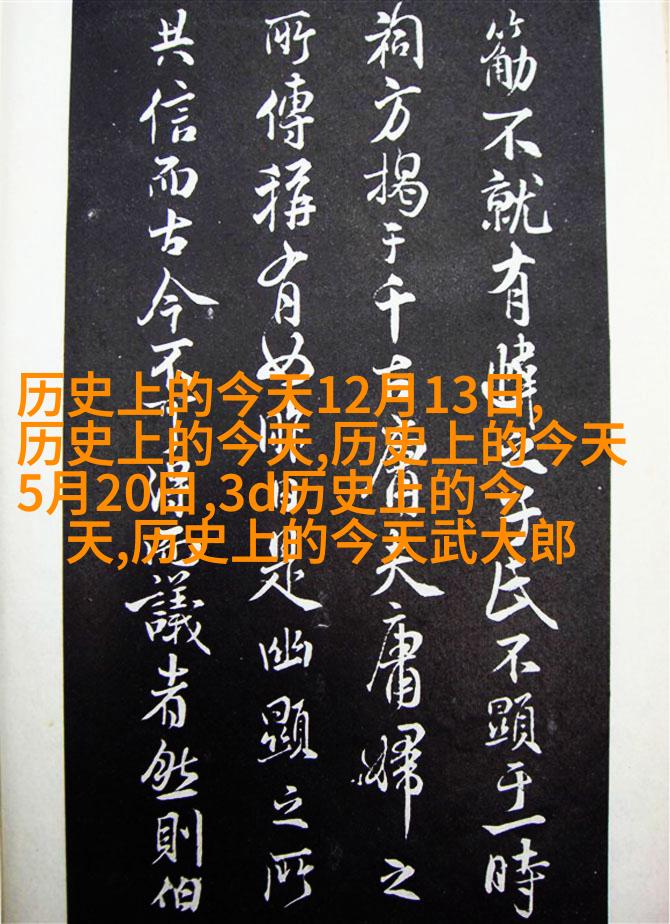 筋不就有偉之子氏不顯于一時
祠方揭于千古庸夫庸婦之
所傳稱有如皦日是幽顯之所
共信而古今不可得而議者然則伯
历史上的今天12月13日,
历史上的今天,历史上的今天
5月20日,3d历史上的今
天,历史上的今天武大郎